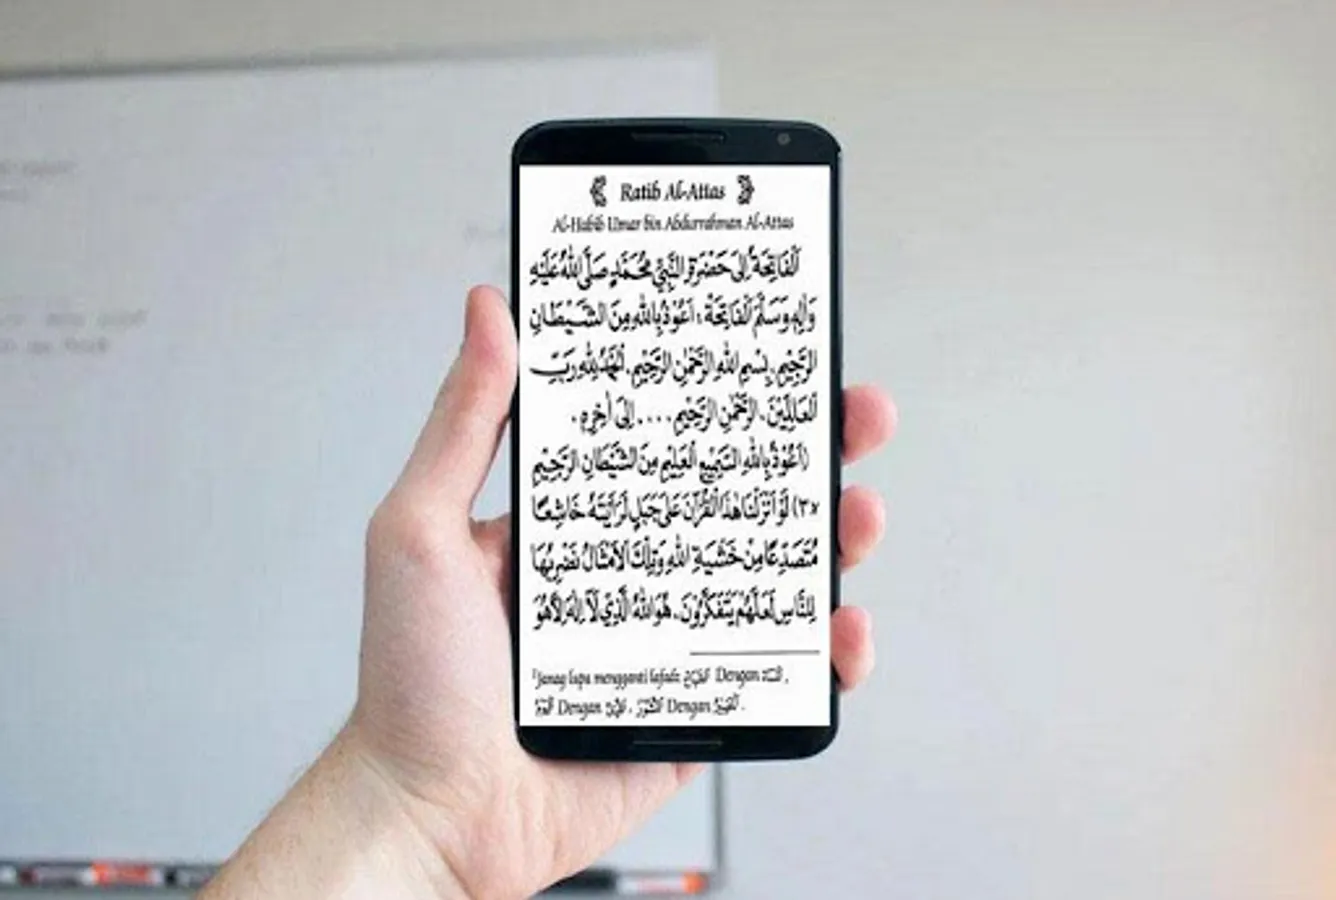 Ratib Al-Attas
Al-Habib Umar bin Abdurrahman Al-Attas
اَلْفَاتِحَةُ اِلَى حَضْرَةِ النَّبِيِّ مُحَمَّدٍ صَلَّى اللهُ عَلَيْهِ
وَاٰلِهِ وَسَلَّمَ اَلْفَاتِحَةْ : اَعُوْذُ بِاللهِ مِنَ الشَّيْطَانِ
الرَّجِيْمِ. بِسْمِ اللهِ الرَّحْمٰنِ الرَّحِيْمِ. اَلْحَمْدُ لِلّٰهِ رَبِّ
الْعَالَمِيْنَ. الرَّحْمٰنِ الرَّحِيْمِ .... اِلَى اٰخِرِهِ .
(اَعُوْذُ بِاللهِ السَّمِيْعِ الْعَلِيْمِ مِنَ الشَّيْطَانِ الرَّجِيْمِ
×٣) لَوْ اَنْزَلْنَا هٰذَا الْقُرْآنَ عَلَى جَبَلٍ لَرَاَيْتَهُ خَاشِعًا
مُتَصَدِّعًا مِنْ خَشْيَةِ اللهِ وَتِلْكَ الْاَمْثَالُ نَضْرِبُهَا
لِلنَّاسِ لَعَلَّهُمْ يَتَفَكَّرُوْنَ. هُوَ اللهُ الَّذِيْ لَآ اِلٰهَ اِلَّا هُوَ
Janag lupa mengganti lafadz Dengan ,
Dengan , Dengan .